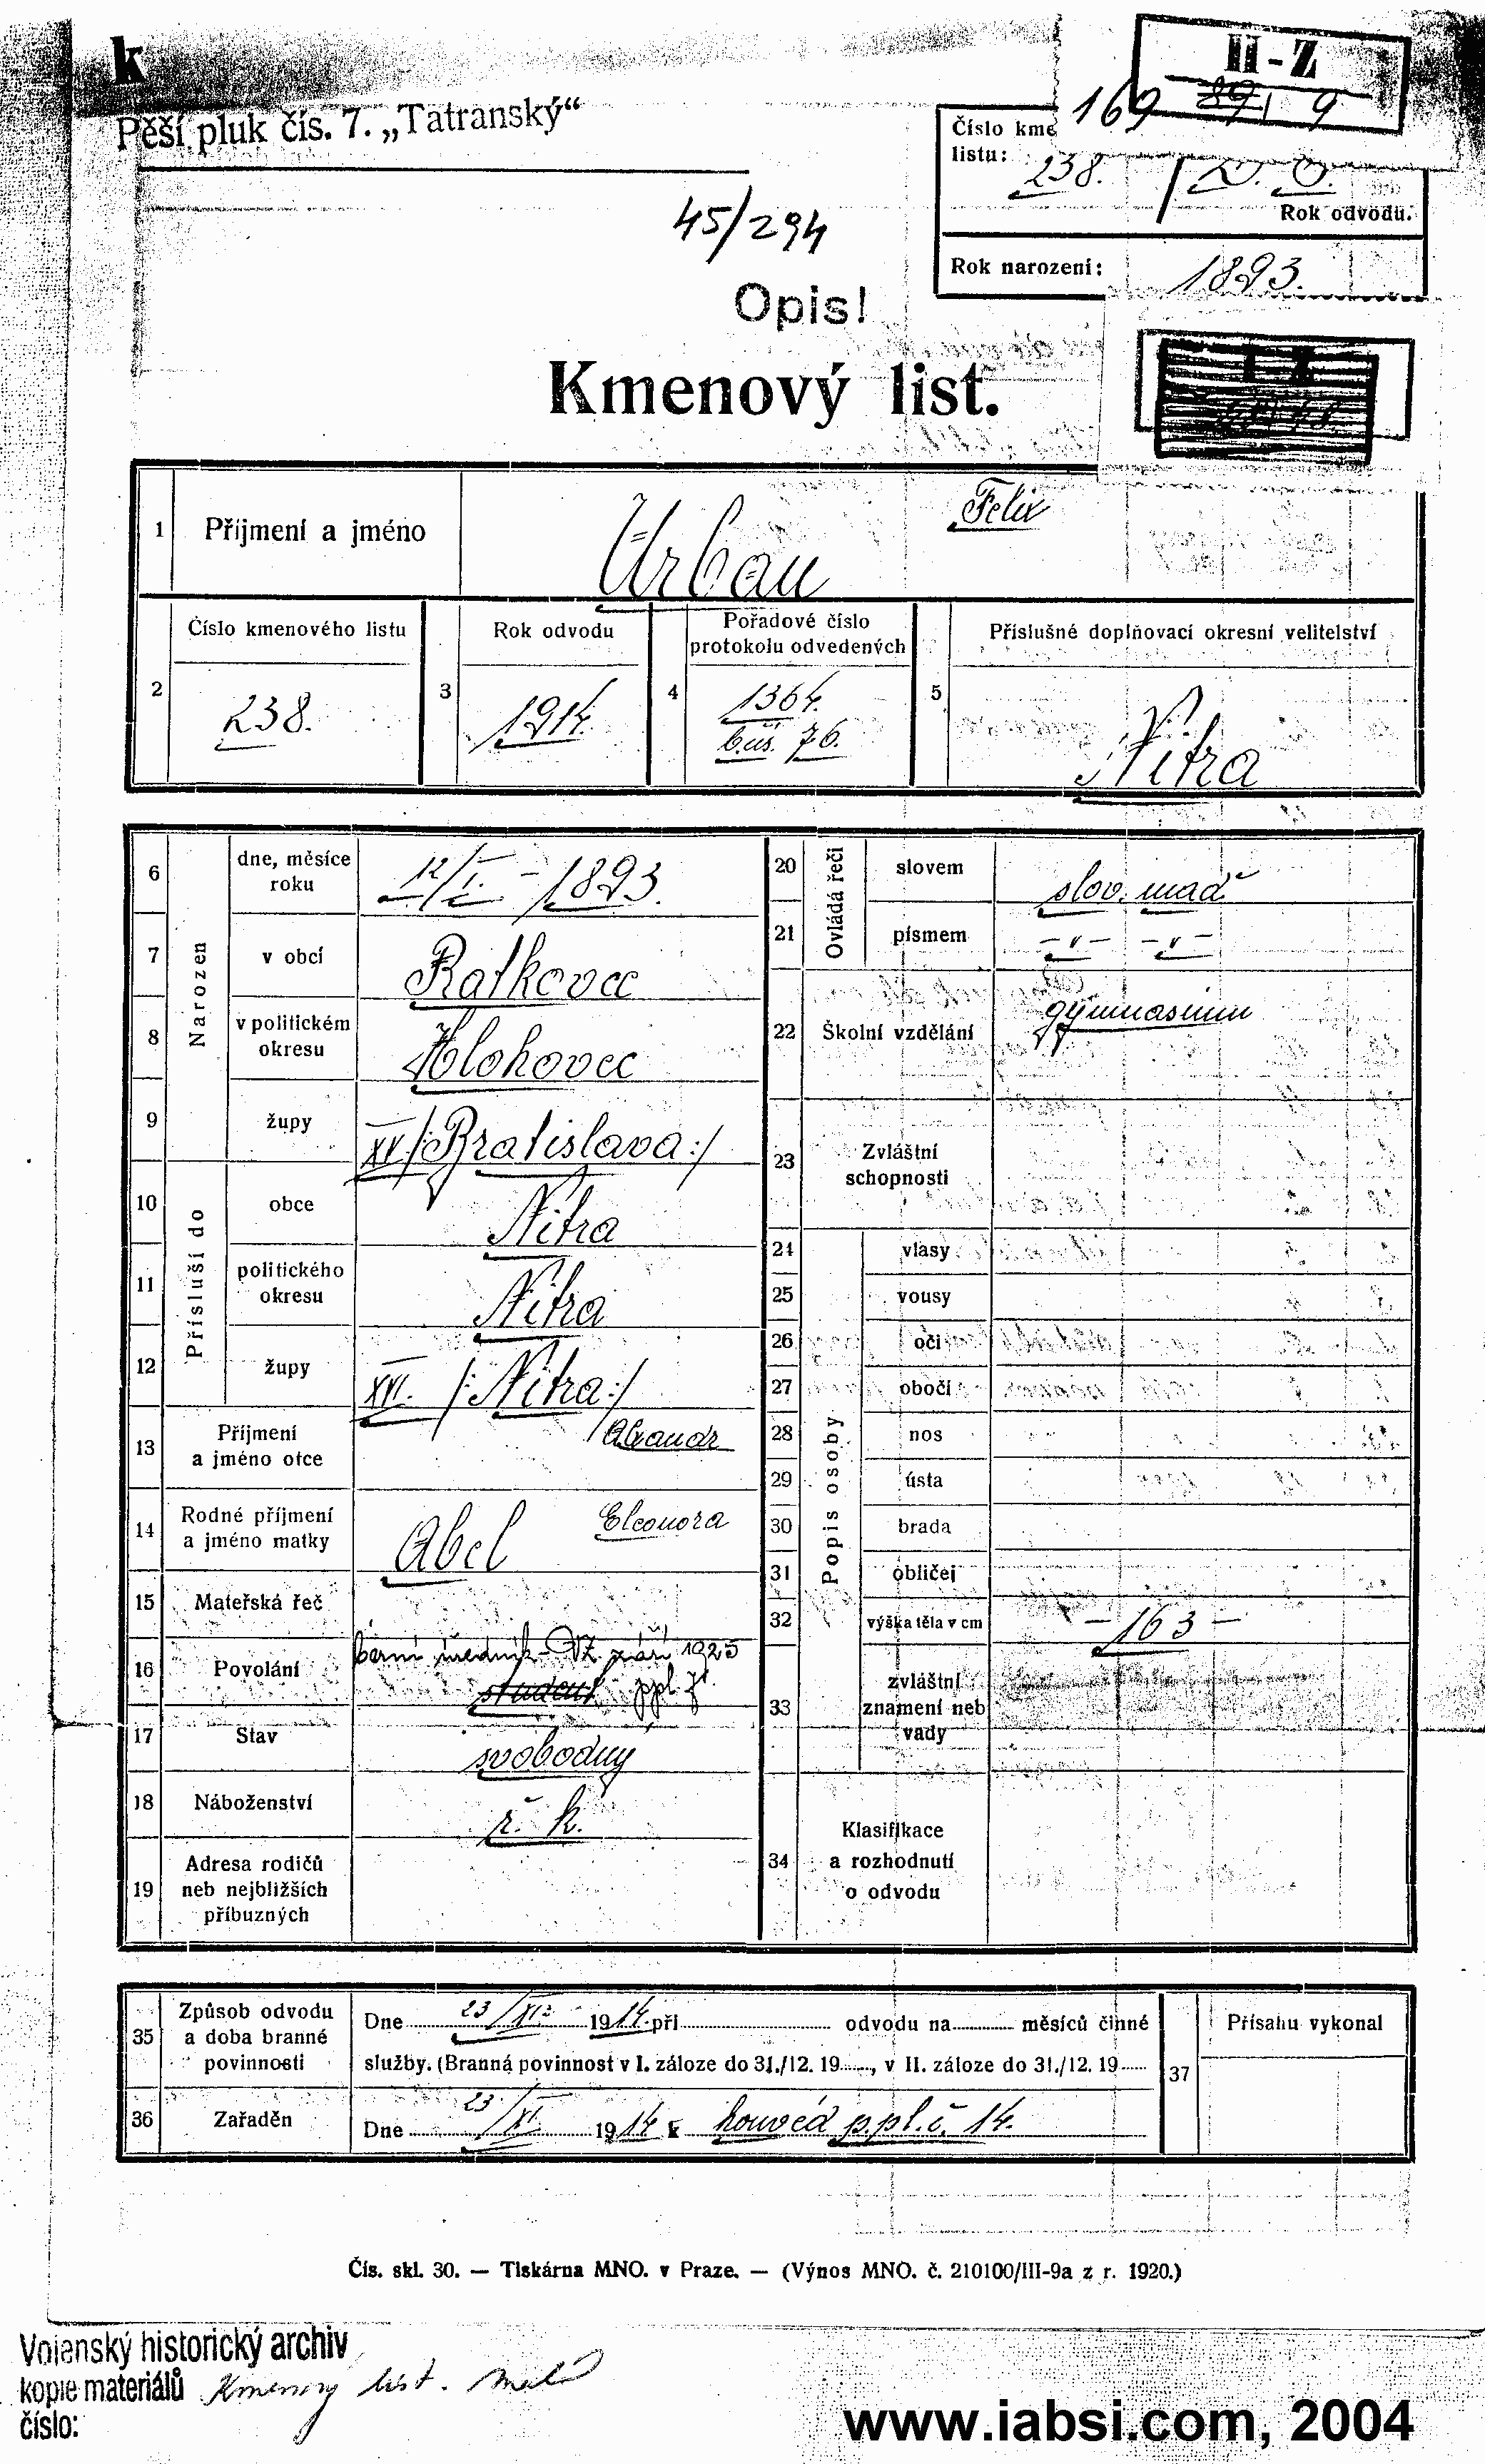 k
Pěší pluk čís. 7. „Tatranský“
H-Z
169 9
Číslo kme
listu: 238. D. O.
Rok odvodu.
45/294
Rok narození: 1893.
Opis!
Kmenový list.
1 Příjmení a jméno Urban Felix
Číslo kmenového listu Rok odvodu Pořadové číslo protokolu odvedených Příslušné doplňovací okresní velitelství
2 238. 3 1914. 4 1364. 5 Nitra
b.us. 76.
Narozen
6 dne, měsíce roku 12/I. - 1893.
7 v obcí Ratkovce
8 v politickém okresu Hlohovec
9 župy XV/:Bratislava:/
Přísluší do
10 obce Nitra
11 politického okresu Nitra
12 župy XVI. /:Nitra:/
13 Příjmení a jméno otce Alexandr
14 Rodné příjmení a jméno matky Abel Eleonora
15 Mateřská řeč
16 Povolání berní úředník - VZ září 1925
student ppl. 7.
17 Stav svobodný
18 Náboženství ř. k.
19 Adresa rodičů neb nejbližších příbuzných
Ovládá řeči
20 slovem slov. maď
21 písmem -v- -v-
22 Školní vzdělání gymnasium
23 Zvláštní schopnosti
Popis osoby
24 vlasy
25 vousy
26 oči
27 obočí
28 nos
29 ústa
30 brada
31 obličej
32 výška těla v cm - 163 -
33 zvláštní znamení neb vady
34 Klasifikace a rozhodnutí o odvodu
35 Způsob odvodu a doba branné povinnosti
Dne 23/XI. 1914. při odvodu na měsíců činné
služby. (Branná povinnost v I. záloze do 31./12. 19....., v II. záloze do 31./12. 19.....
36 Zařaděn Dne 23/XI. 1914 k honvéd p.pl.č. 14.
37 Přísahu vykonal
Čís. skl. 30. — Tiskárna MNO. v Praze. — (Výnos MNO. č. 210100/III-9a z r. 1920.)
Vojenský historický archiv
kopie materiálů Kmenový list.
číslo:
www.iabsi.com, 2004